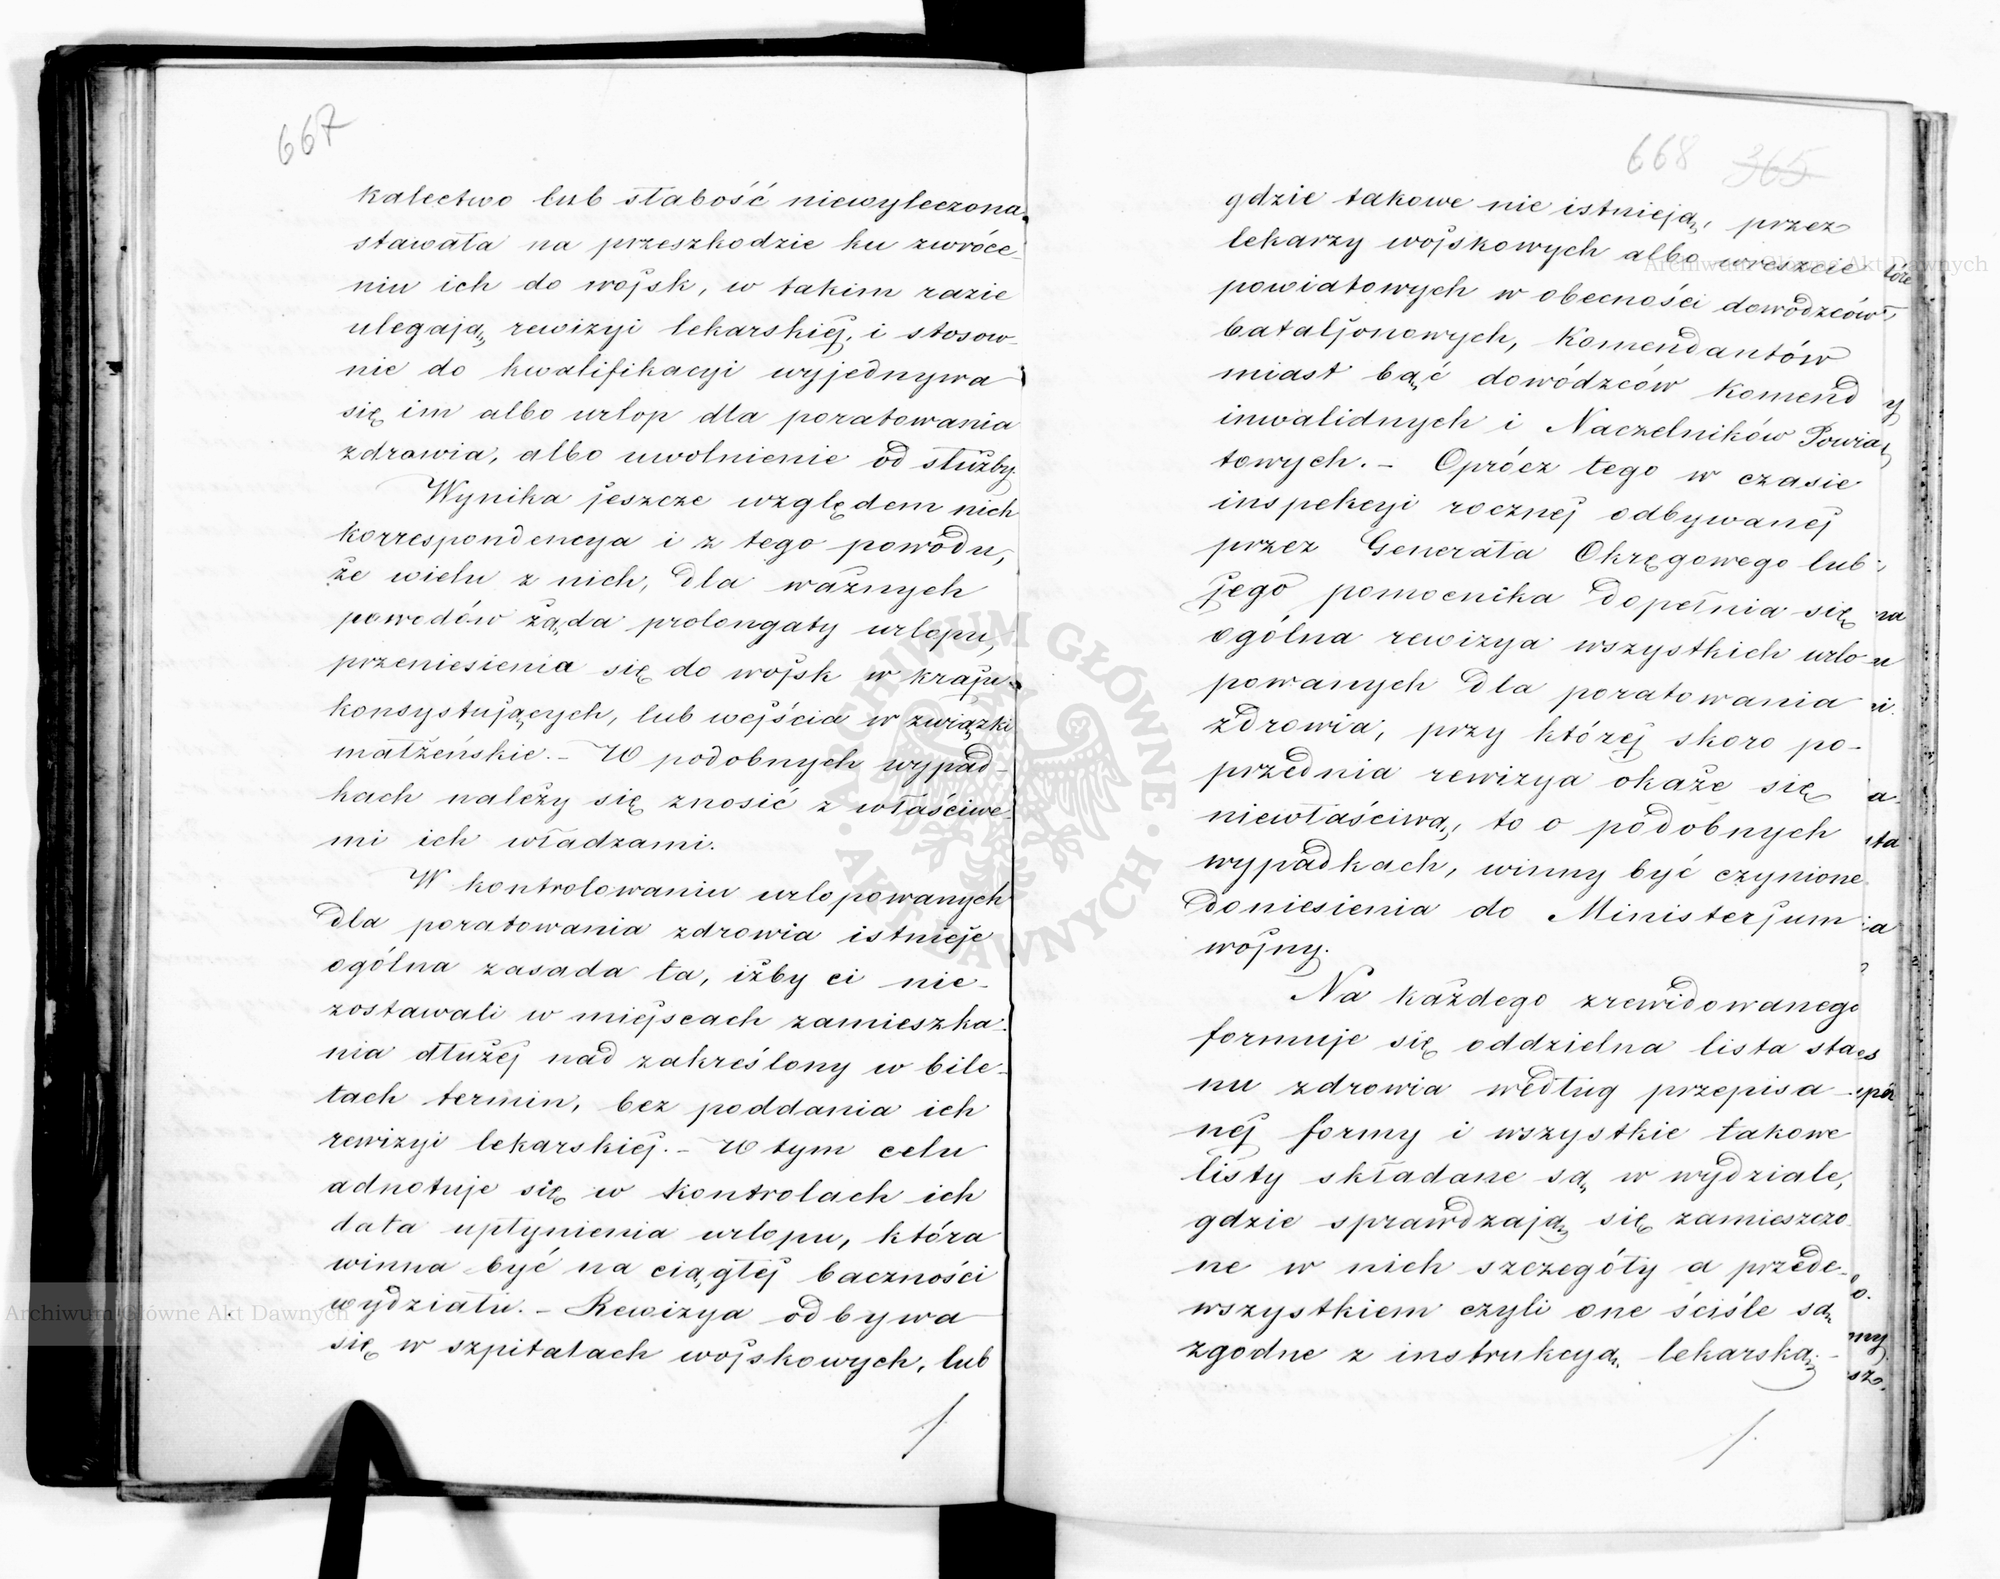 667
kalectwo lub słabość niewyleczona
stawała na przeszkodzie ku zwróce-
niu ich do wojsk, w takim razie
ulegają, rewizyi lekarskiej, i stosow-
nie do kwalifikacyi wyjednywa
się im albo urlop dla poratowania
zdrowia, albo uwolnienie od służby.
Wynika jeszcze względem nich
korrespondencya i z tego powodu,
że wielu z nich, dla ważnych
powodów żąda prolongaty urlopu,
przeniesienia się do wojsk w kraju
konsystujących, lub wejścia w związki
małżeńskie. – W podobnych wypad-
kach należy się znosić z właściwe-
mi ich władzami.
W kontrolowaniu urlopowanych
dla poratowania zdrowia istnieje
ogólna zasada ta, iżby ci nie-
zostawali w miejscach zamieszka-
nia dłużej nad zakreślony w bile-
tach termin, bez poddania ich
rewizyi lekarskiej. – W tym celu
adnotuje się w kontrolach ich
data upłynienia urlopu, która
winna być na ciągłej baczności
wydziału. – Rewizya odbywa
się w szpitalach wojskowych, lub
668 365
gdzie takowe nie istnieją, przez
lekarzy wojskowych albo wreszcie
powiatowych w obecności dowódzców
bataljonowych, Komendantów
miast bąć dowódzców Komend
inwalidnych i Naczelników Powia
towych. – Oprócz tego w czasie
inspekcyi rocznej odbywanej
przez Generała Okręgowego lub
jego pomocnika dopełnia się
ogólna rewizya wszystkich urlo
powanych dla poratowania
zdrowia, przy której skoro po-
przednia rewizya okaże się
niewłaściwą, to o podobnych
wypadkach, winny być czynione
doniesienia do Ministerjum
wojny.
Na każdego zrewidowanego
formuje się oddzielna lista sta
nu zdrowia według przepisa –
nej formy i wszystkie takowe
listy składane są w wydziale,
gdzie sprawdzają się zamieszczo
ne w nich szczegóły a przede-
wszystkiem czyli one ściśle są
zgodne z instrukcyą lekarską. –
Archiwum Główne Akt Dawnych
Archiwum Główne Akt Dawnych
ARCHIWUM GŁÓWNE · AKT DAWNYCH ·